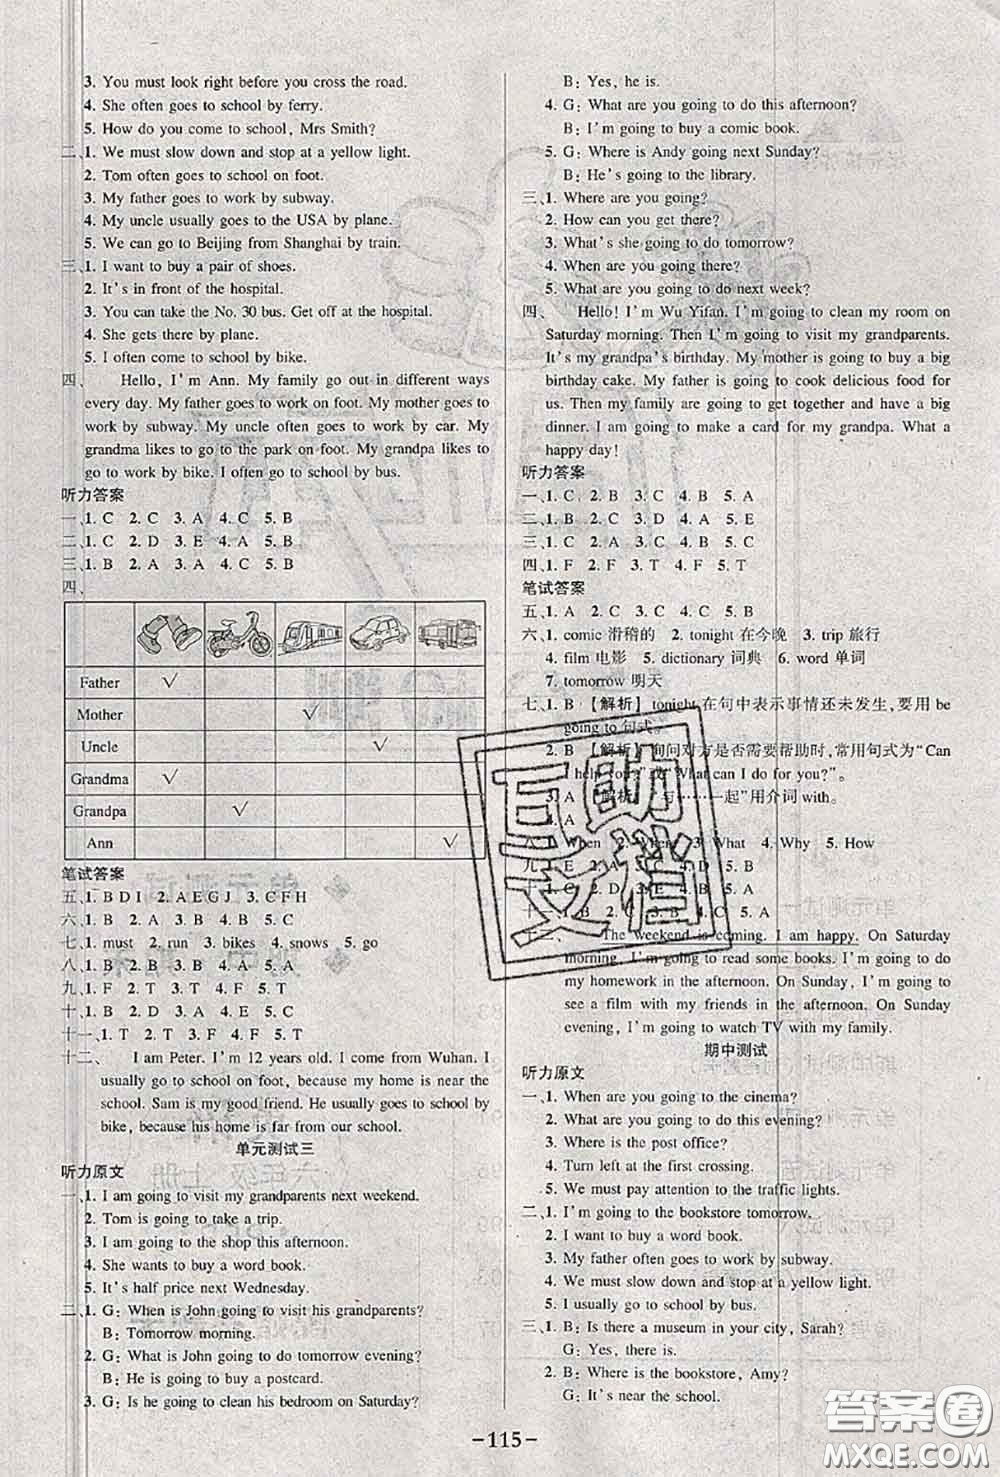 3. You must look right before you cross the road.
4. She often goes to school by ferry.
5. How do you come to school, Mrs Smith?
二、1. We must slow down and stop at a yellow light.
2. Tom often goes to school on foot.
3. My father goes to work by subway.
4. My uncle usually goes to the USA by plane.
5. We can go to Beijing from Shanghai by train.
三、1. I want to buy a pair of shoes.
2. It's in front of the hospital.
3. You can take the No. 30 bus. Get off at the hospital.
4. She gets there by plane.
5. I often come to school by bike.
四、 Hello, I'm Ann. My family go out in different ways
every day. My father goes to work on foot. My mother goes to
work by subway. My uncle often goes to work by car. My
grandma likes to go to the park on foot. My grandpa likes to
go to work by bike. I often go to school by bus.
听力答案
一、1. C 2. C 3. A 4. C 5. B
二、1. C 2. D 3. E 4. A 5. B
三、1. B 2. A 3. A 4. B 5. C
四、
Father √
Mother √
Uncle √
Grandma √
Grandpa √
Ann √
笔试答案
五、1. B D I 2. A E G J 3. C F H
六、1. B 2. C 3. A 4. B 5. C
七、1. must 2. run 3. bikes 4. snows 5. go
八、1. B 2. A 3. C 4. B 5. B
九、1. F 2. T 3. F 4. F 5. T
十、1. D 2. A 3. B 4. E 5. C
十一、1. T 2. T 3. F 4. F 5. T
十二、 I am Peter. I'm 12 years old. I come from Wuhan. I
usually go to school on foot, because my home is near the
school. Sam is my good friend. He usually goes to school by
bike, because his home is far from our school.
单元测试三
听力原文
一、1. I am going to visit my grandparents next weekend.
2. Tom is going to take a trip.
3. I am going to the shop this afternoon.
4. She wants to buy a word book.
5. It's half price next Wednesday.
二、1. G: When is John going to visit his grandparents?
B: Tomorrow morning.
2. G: What is John going to do tomorrow evening?
B: He is going to buy a postcard.
3. G: Is he going to clean his bedroom on Saturday?
B: Yes, he is.
4. G: What are you going to do this afternoon?
B: I'm going to buy a comic book.
5. G: Where is Andy going next Sunday?
B: He's going to the library.
三、1. Where are you going?
2. How can you get there?
3. What's she going to do tomorrow?
4. When are you going there?
5. What are you going to do next week?
四、 Hello! I'm Wu Yifan. I'm going to clean my room on
Saturday morning. Then I'm going to visit my grandparents.
It's my grandpa's birthday. My mother is going to buy a big
birthday cake. My father is going to cook delicious food for
us. Then my family are going to get together and have a big
dinner. I am going to make a card for my grandpa. What a
happy day!
听力答案
一、1. C 2. B 3. C 4. B 5. A
二、1. B 2. C 3. D 4. A 5. E
三、1. B 2. C 3. A 4. B 5. C
四、1. F 2. F 3. T 4. F 5. T
笔试答案
五、1. A 2. C 3. B 4. B 5. C
六、1. comic 滑稽的 2. tonight 在今晚 3. trip 旅行
4. film 电影 5. dictionary 词典 6. word 单词
7. tomorrow 明天
七、1. B 【解析】tonight 在句中表示事情还未发生，要用 be
going to 句式。
2. B 【解析】询问对方是否需要帮助时，常用句式为“Can
I help you?”或“What can I do for you?”。
3. A 【解析】“与……一起”用介词 with。
4. A
八、1. When 2. Where 3. What 4. Why 5. How
九、1. E 2. A
十、1. C 2. B
5. A
The weekend is coming. I am happy. On Saturday
morning, I'm going to read some books. I'm going to do
my homework in the afternoon. On Sunday, I'm going to
see a film with my friends in the afternoon. On Sunday
evening, I'm going to watch TV with my family.
期中测试
听力原文
一、1. When are you going to the cinema?
2. What are you going to do this evening?
3. Where is the post office?
4. Turn left at the first crossing.
5. We must pay attention to the traffic lights.
二、1. I'm going to the bookstore tomorrow.
2. I am going to buy a word book.
3. My father often goes to work by subway.
4. We must slow down and stop at a yellow light.
5. I usually go to school by bus.
三、1. B: Is there a museum in your city, Sarah?
G: Yes, there is.
2. B: Where is the bookstore, Amy?
G: It's near the school.
互助文档
答案圈
MXQE.COM
-115-